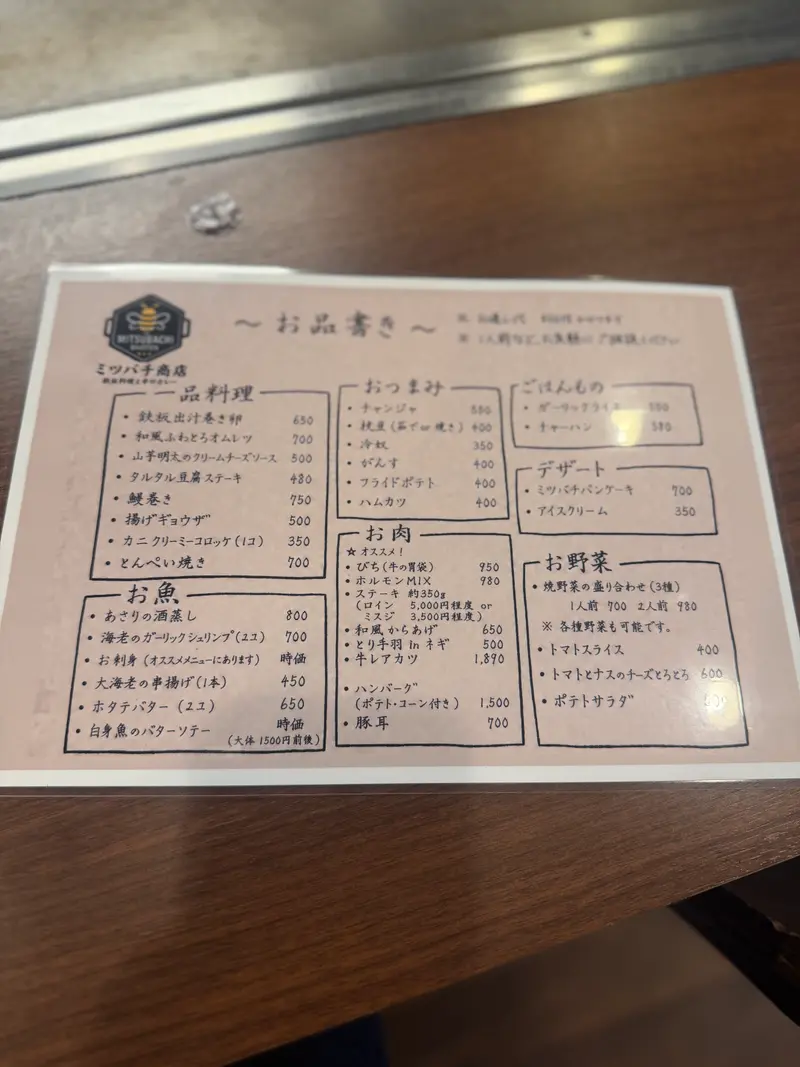 MITSUBACHI
ミツバチ商店
～お品書き～
一品料理
・鉄板出汁巻き卵 650
・和風ふわとろオムレツ 700
・山芋明太のクリームチーズソース 500
・タルタル豆腐ステーキ 480
・鰻巻き 750
・揚げギョウザ 500
・カニクリーミーコロッケ(1コ) 350
・とんぺい焼き 700
お魚
・あさりの酒蒸し 800
・海老のガーリックシュリンプ(2コ) 700
・お刺身(オススメメニューにあります) 時価
・大海老の串揚げ(1本) 450
・ホタテバター(2コ) 650
・白身魚のバターソテー 時価
(大体1500円前後)
おつまみ
・チャンジャ 550
・枝豆(茹でor焼き) 400
・冷奴 350
・がんす 400
・フライドポテト 400
・ハムカツ 400
お肉
☆オススメ!
・びち(牛の胃袋) 950
・ホルモンMIX 980
・ステーキ 約350g
(ロイン 5,000円程度 or
ミスジ 3,500円程度)
・和風からあげ 650
・とり手羽inネギ 500
・牛レアカツ 1,890
・ハンバーグ
(ポテト・コーン付き) 1,500
・豚耳 700
ごはんもの
・ガーリックライス
・チャーハン 580
デザート
・ミツバチパンケーキ 700
・アイスクリーム 350
お野菜
・焼野菜の盛り合わせ(3種)
1人前 700 2人前 980
※各種野菜も可能です。
・トマトスライス 400
・トマトとナスのチーズとろとろ 600
・ポテトサラダ